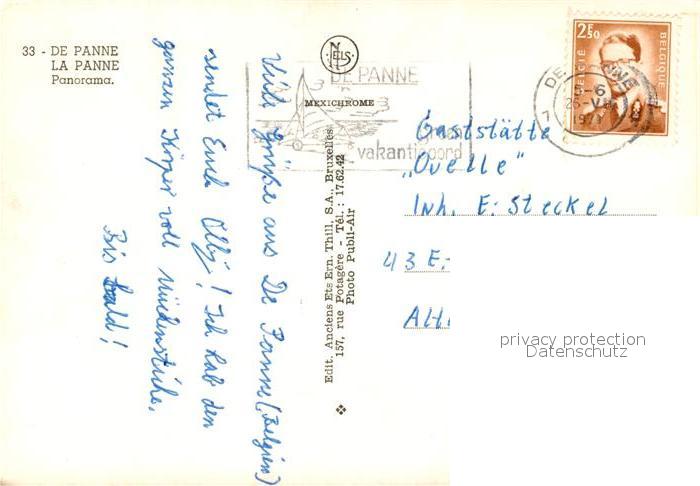 33 - DE PANNE
LA PANNE
Panorama.
Viele Grüße aus De Panne (Belgien)
sendet Euch Olly! Ich hab den
ganzen Körper voll Mückenstiche.
Bis bald!
ELS
MEXICHROME
Edit. Anciens Ets Ern. Thill, S.A., Bruxelles
157, rue Potagère - Tél. : 17.62.42
Photo Publi-Air
DE PANNE
vakantieoord
2F50
BELGIË
BELGIQUE
DE PANNE
Gaststätte
„Quelle"
Inh. E. Steckel
43 E
Alt
privacy protection
Datenschutz